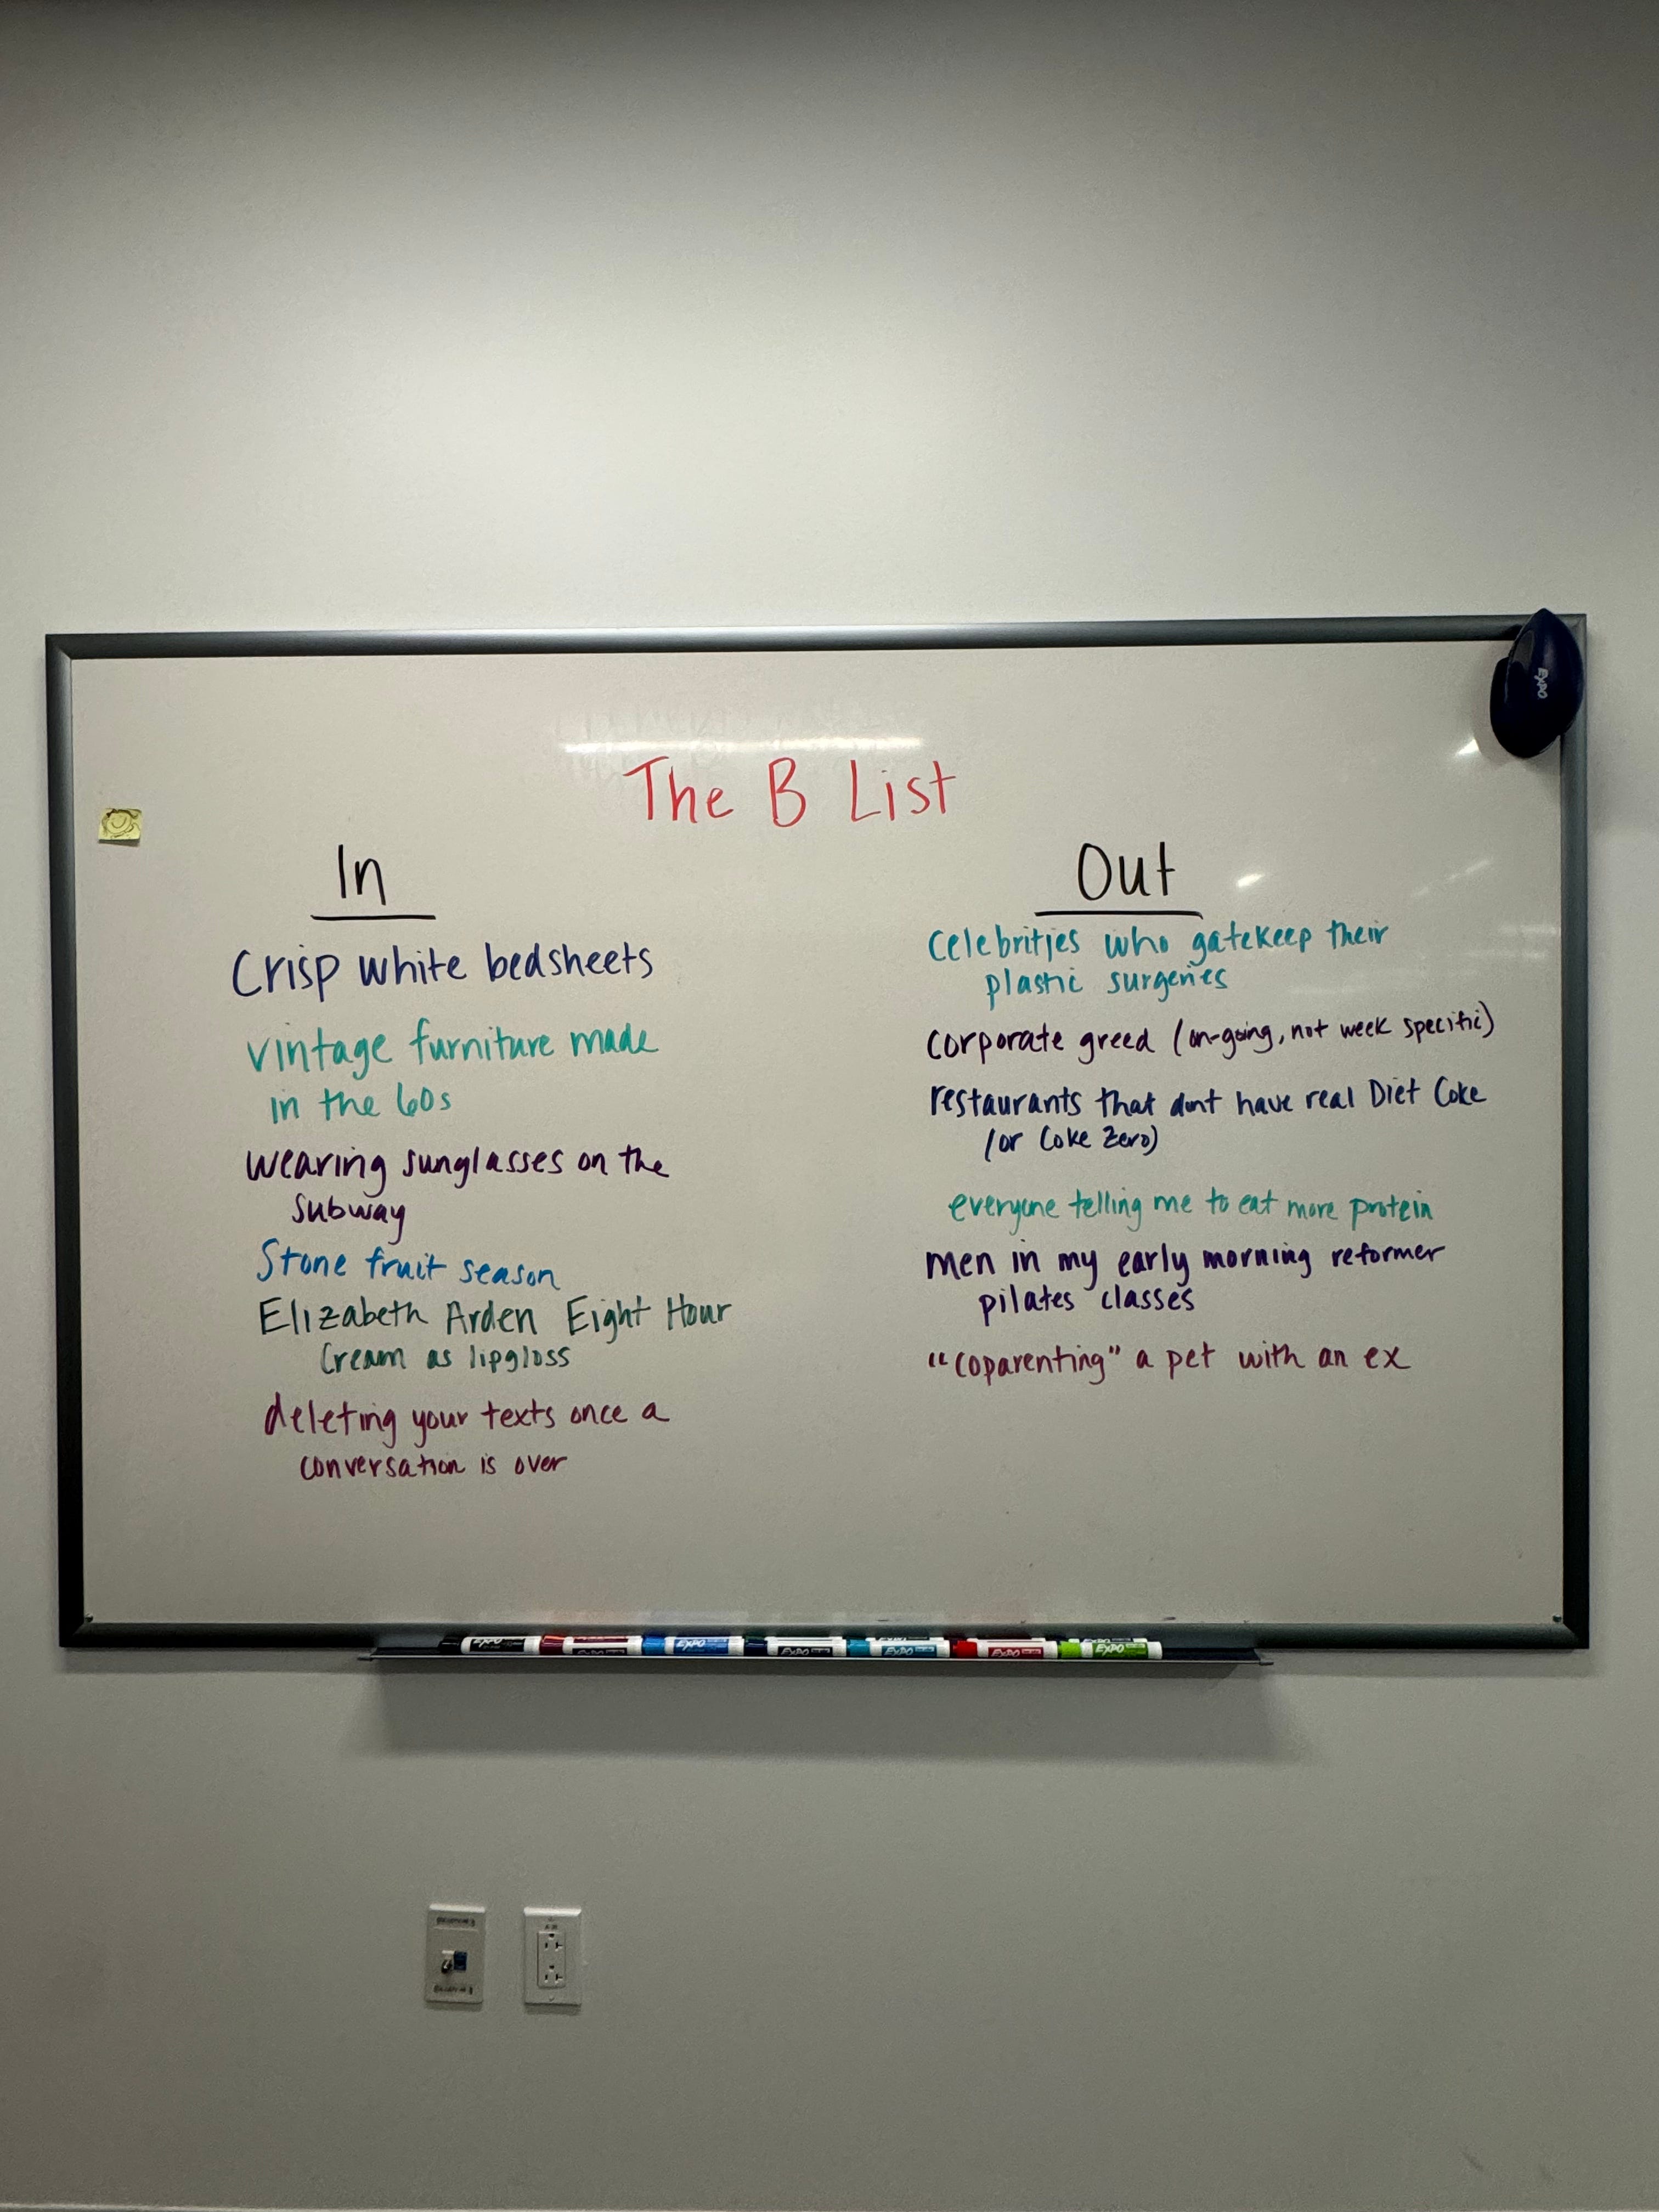 The B List
In
Crisp white bedsheets
vintage furniture made
in the 60s
wearing sunglasses on the
subway
Stone fruit season
Elizabeth Arden Eight Hour
Cream as lipgloss
deleting your texts once a
conversation is over
Out
Celebrities who gatekeep their
plastic surgeries
corporate greed (on-going, not week specific)
restaurants that dont have real Diet Coke
(or Coke Zero)
everyone telling me to eat more protein
men in my early morning reformer
pilates classes
"coparenting" a pet with an ex
EXPO
EXPO
EXPO
EXPO
EXPO
EXPO
EXPO